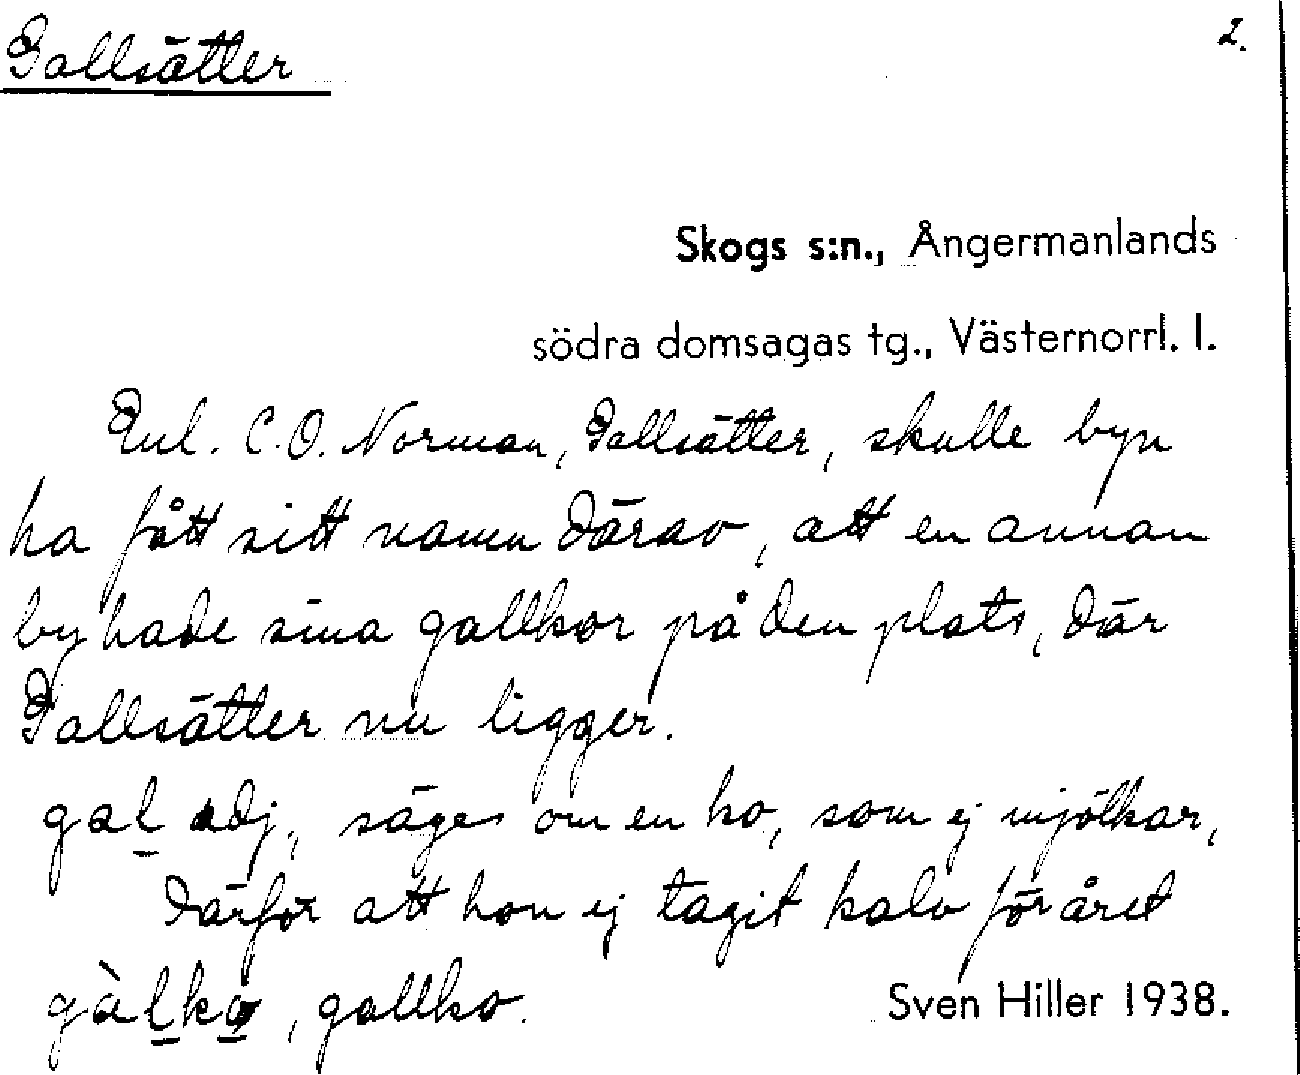 Gallsätter
2.
Skogs s:n., Ångermanlands
södra domsagas tg., Västernorrl. l.
Enl. C.O. Norman, Gallsätter, skulle byn
ha fått sitt namn därav, att en annan
by hade sina gallkor på den plats, där
Gallsätter nu ligger.
gal adj., säges om en ko, som ej mjölkar,
därför att hon ej tagit kalv för året
gàlko, gallko.
Sven Hiller 1938.